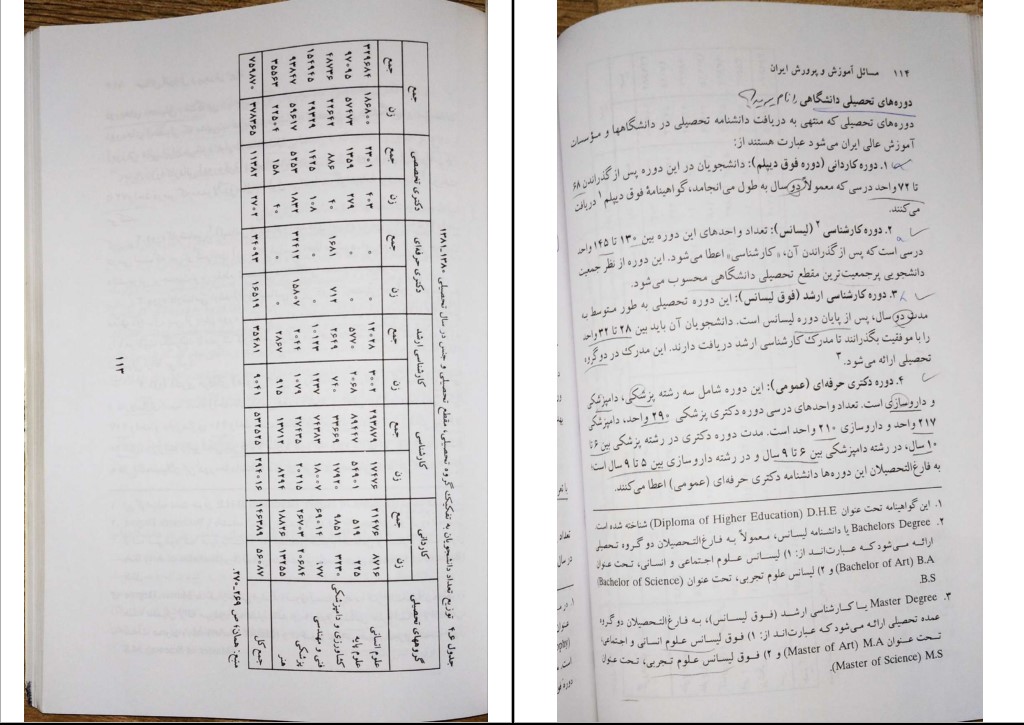 جدول ۴ـ۶ توزیع تعداد دانشجویان به تفکیک گروه تحصیلی، مقطع تحصیلی و جنس در سال تحصیلی ۱۳۸۰ـ۱۳۸۱
گروههای تحصیلی کاردانی کارشناسی کارشناسی ارشد دکتری حرفه‌ای دکتری تخصصی جمع
زن جمع زن جمع زن جمع زن جمع زن جمع زن جمع
علوم انسانی ۸۷۱۶ ۲۱۴۷۶ ۲۹۳۸۷۹ ۳۰۰۲ ۱۲۰۲۸ ۰ ۰ ۴۰۳ ۲۳۰۱ ۱۸۶۸۰۰ ۳۲۹۶۸۴
علوم پایه ۲۲۵ ۵۱۹ ۵۴۹۰۱ ۸۹۴۴۷ ۲۰۶۸ ۵۷۷۰ ۰ ۰ ۲۷۹ ۱۳۵۹ ۵۷۴۷۳ ۹۷۰۹۵
کشاورزی و دامپزشکی ۳۲۳۰ ۹۸۵۱ ۱۷۹۲۰ ۳۳۶۶۹ ۷۴۰ ۲۶۴۹ ۷۱۲ ۱۶۸۱ ۴۰ ۸۸۶ ۲۲۶۴۲ ۴۸۷۳۶
فنی و مهندسی ۶۹۰۱۴ ۱۸۰۰۷ ۷۴۳۸۳ ۱۲۳۷ ۱۰۱۲۳ ۰ ۰ ۱۰۸ ۱۴۲۵ ۲۹۳۲۹ ۱۵۴۹۴۵
پزشکی ۲۰۶۸۴ ۲۶۷۰۳ ۲۰۲۱۵ ۲۷۴۳۵ ۱۰۷۹ ۲۰۴۴ ۱۵۸۰۷ ۳۲۴۱۲ ۱۸۳۲ ۵۲۵۳ ۵۹۶۱۷ ۹۳۸۴۷
هنر ۱۳۲۵۵ ۱۸۸۲۶ ۸۲۹۴ ۱۳۷۱۲ ۹۱۵ ۲۸۶۷ ۰ ۰ ۴۰ ۱۵۸ ۲۲۵۰۴ ۳۵۵۶۳
جمع کل ۵۶۰۸۷ ۱۴۶۳۸۹ ۲۹۴۰۱۶ ۵۳۲۵۲۵ ۹۰۴۱ ۳۵۴۸۱ ۱۶۵۱۹ ۳۴۰۹۳ ۲۷۰۲ ۱۱۳۸۲ ۳۷۸۳۶۵ ۷۵۹۸۷۰
منبع: همان، ص ۲۶۹ـ۲۷۰.
۱۱۳
۱۱۴ مسائل آموزش و پرورش ایران
دوره‌های تحصیلی دانشگاهی را نام ببرید؟
دوره‌های تحصیلی که منتهی به دریافت دانشنامه تحصیلی در دانشگاهها و مؤسسات
آموزش عالی ایران می‌شود عبارت هستند از:
۱. دوره کاردانی (دوره فوق دیپلم): دانشجویان در این دوره پس از گذراندن ۶۸
تا ۷۲ واحد درسی که معمولاً دو سال به طول می‌انجامد، گواهینامهٔ فوق دیپلم ۱ دریافت
می‌کنند.
۲. دوره کارشناسی ۲ (لیسانس): تعداد واحدهای این دوره بین ۱۳۰ تا ۱۴۵ واحد
درسی است که پس از گذراندن آن، «کارشناسی» اعطا می‌شود. این دوره از نظر جمعیت
دانشجویی پرجمعیت‌ترین مقطع تحصیلی دانشگاهی محسوب می‌شود.
۳. دوره کارشناسی ارشد (فوق لیسانس): این دوره تحصیلی به طور متوسط به
مدت دو سال، پس از پایان دوره لیسانس است. دانشجویان آن باید بین ۲۸ تا ۳۲ واحد
را با موفقیت بگذرانند تا مدرک کارشناسی ارشد دریافت دارند. این مدرک در دو گروه
تحصیلی ارائه می‌شود. ۳
۴. دوره دکتری حرفه‌ای (عمومی): این دوره شامل سه رشته پزشکی، دامپزشکی
و داروسازی است. تعداد واحدهای درسی دوره دکتری پزشکی ۲۹۰ واحد، دامپزشکی
۲۱۷ واحد و داروسازی ۲۱۰ واحد است. مدت دوره دکتری در رشته پزشکی بین ۶ تا
۱۰ سال، در رشته دامپزشکی بین ۶ تا ۹ سال و در رشته داروسازی بین ۵ تا ۹ سال است؛
به فارغ‌التحصیلان این دوره‌ها دانشنامه دکتری حرفه‌ای (عمومی) اعطا می‌کنند.
۱. این گواهینامه تحت عنوان D.H.E (Diploma of Higher Education) شناخته شده است
۲. Bachelors Degree یا دانشنامه لیسانس، معمولاً به فارغ‌التحصیلان دو گروه تحصیلی
ارائه می‌شود که عبارت‌اند از: ۱) لیسانس علوم اجتماعی و انسانی، تحت عنوان
B.A (Bachelor of Art) و ۲) لیسانس علوم تجربی، تحت عنوان (Bachelor of Science)
B.S.
۳. Master Degree یا کارشناسی ارشد (فوق لیسانس)، به فارغ‌التحصیلان دو گروه
عمده تحصیلی ارائه می‌شود که عبارت‌اند از: ۱) فوق لیسانس علوم انسانی و اجتماعی،
تحت عنوان M.A (Master of Art) و ۲) فوق لیسانس علوم تجربی، تحت عنوان
M.S (Master of Science).